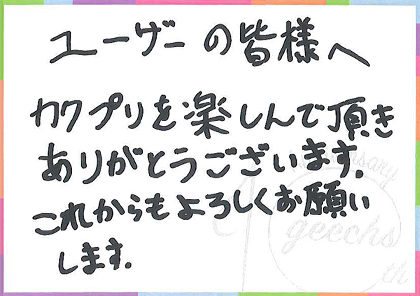 ユーザーの皆様へ
カクプリを楽しんで頂き
ありがとうございます.
これからもよろしくお願い
します.
geechs
th